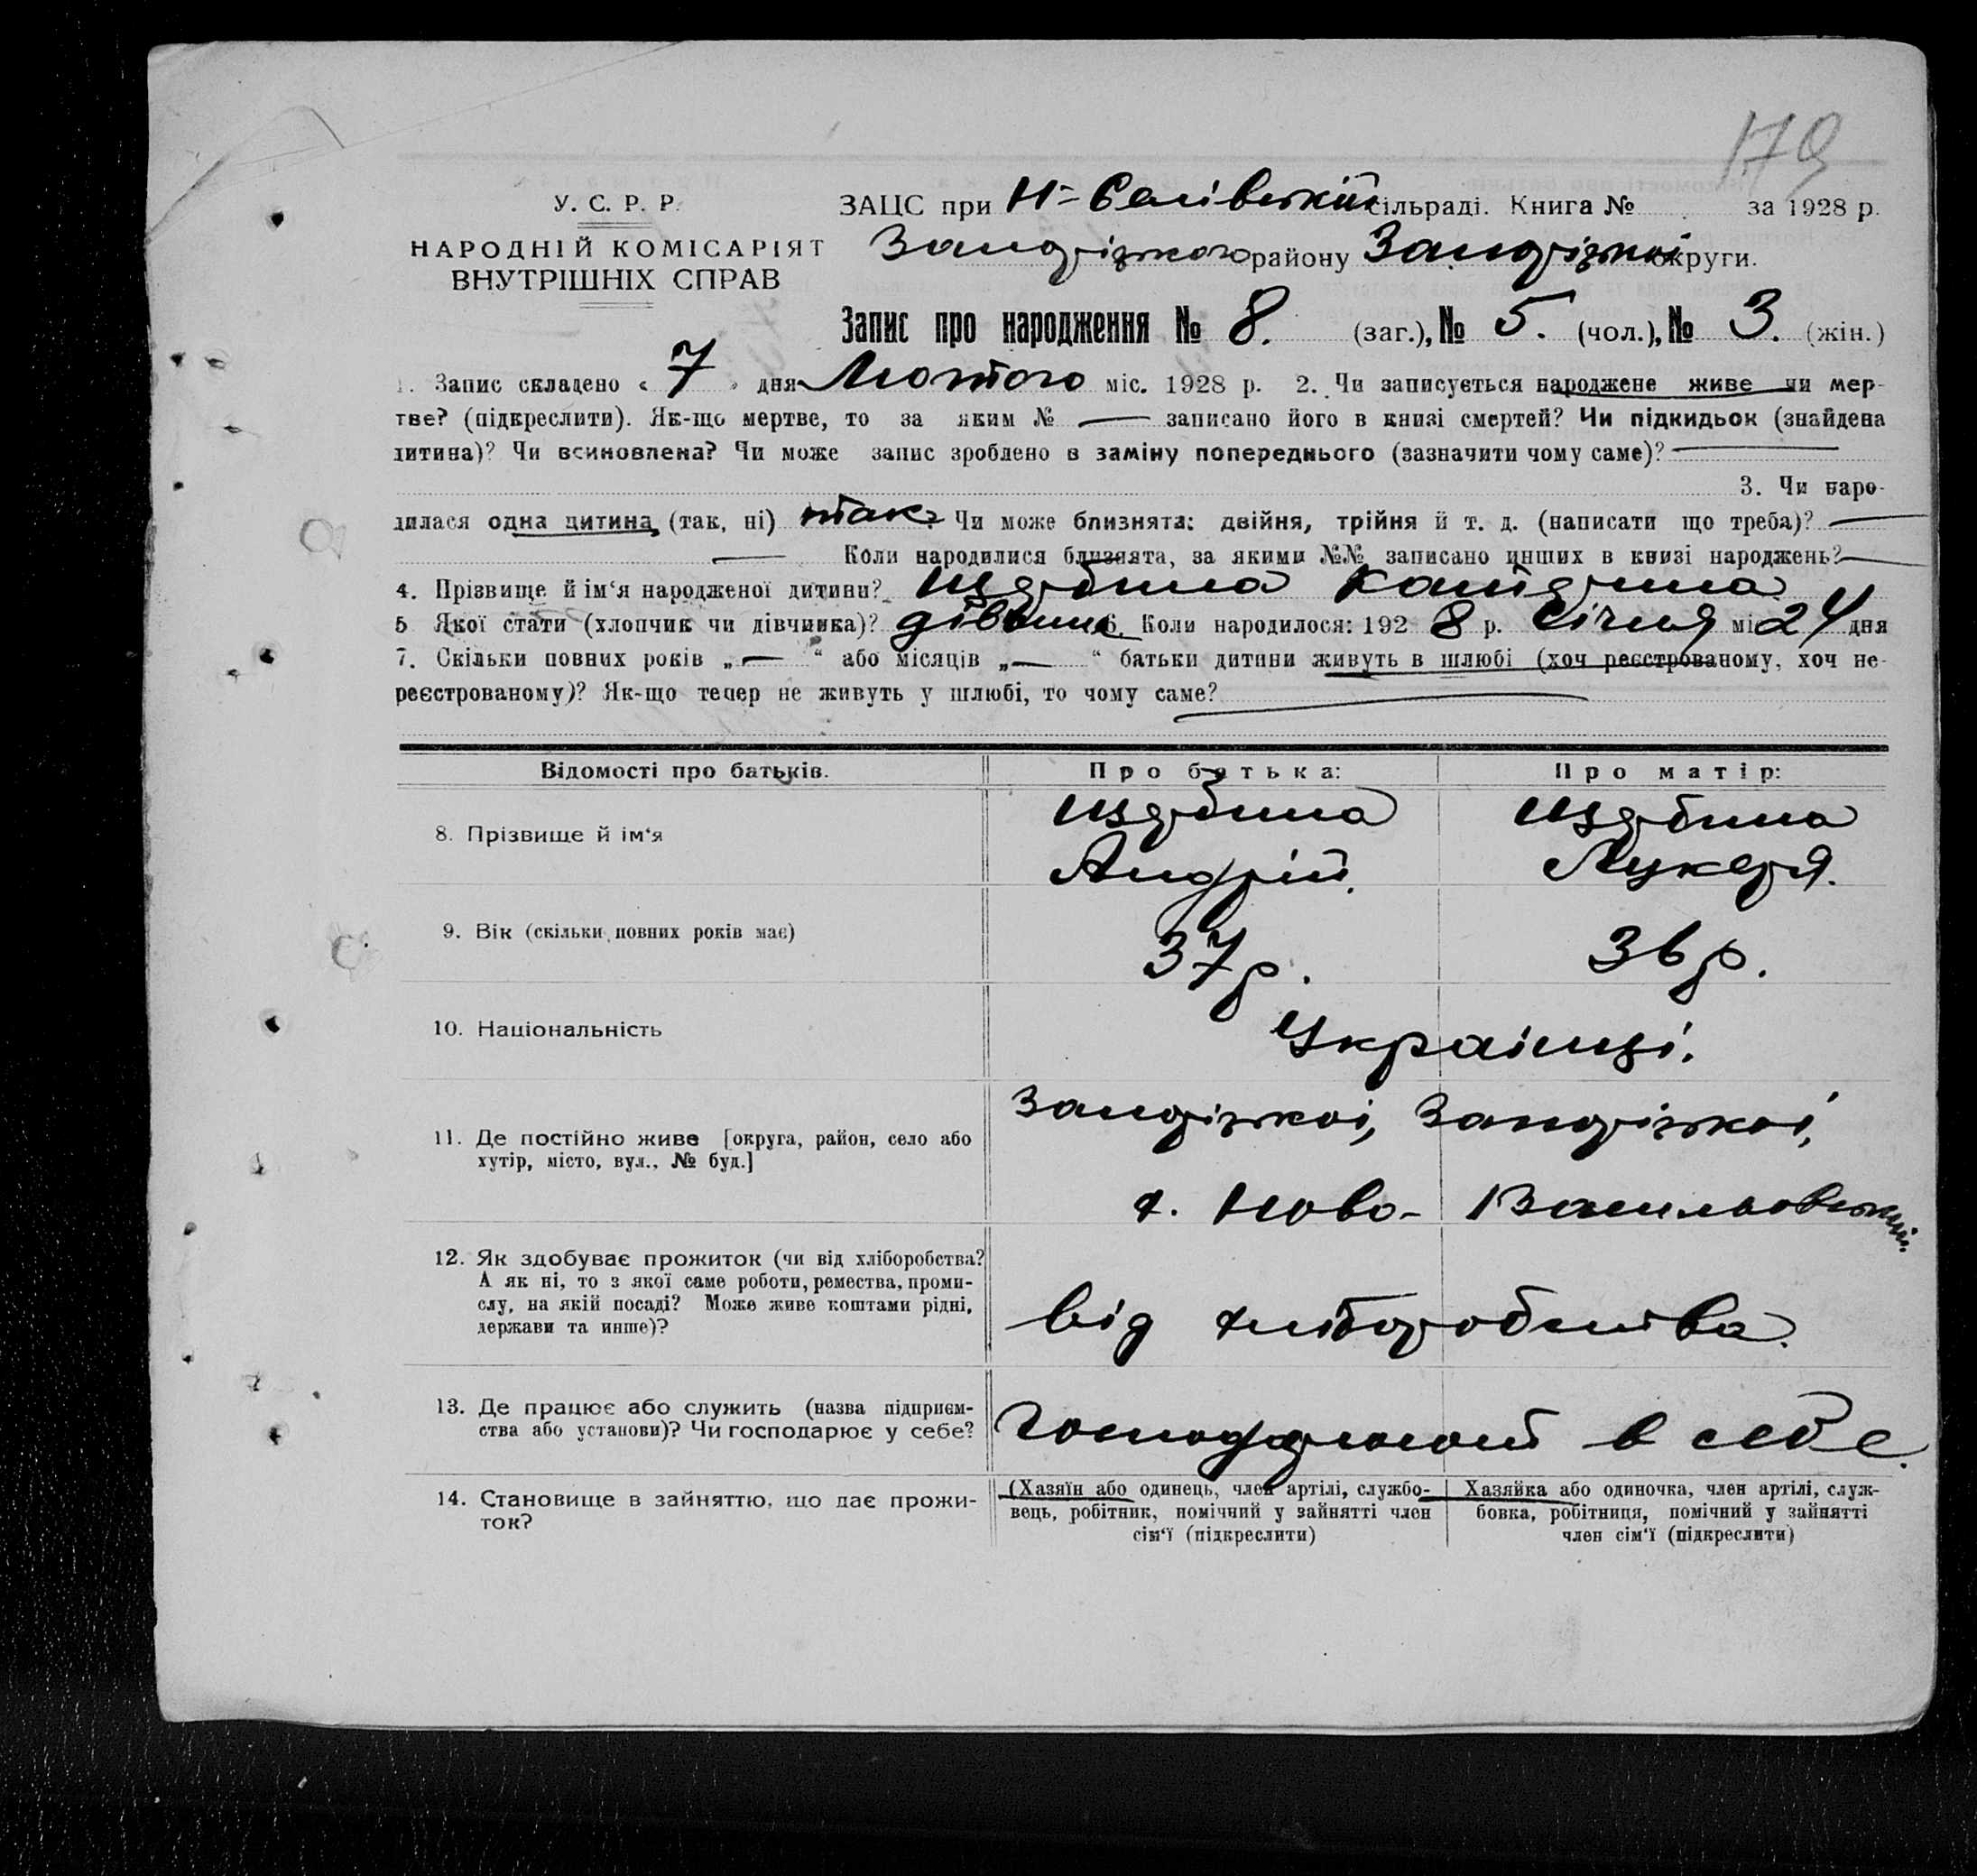 179
У. С. Р. Р.
НАРОДНІЙ КОМІСАРІЯТ
ВНУТРІШНІХ СПРАВ
ЗАЦС при Н-Селівській сільраді. Книга № за 1928 р.
району округи.
Запис про народження № 8. (заг.), № 5. (чол.), № 3. (жін.)
1. Запис складено « 7 » дня Лютого міс. 1928 р. 2. Чи записується народжене живе чи мер-
тве? (підкреслити). Як-що мертве, то за яким № — записано його в книзі смертей? Чи підкидьок (знайдена
дитина)? Чи всиновлена? Чи може запис зроблено в заміну попереднього (зазначити чому саме)? —
3. Чи наро-
дилася одна дитина, (так, ні) так Чи може близнята: двійня, трійня й т. д. (написати що треба)? —
— Коли народилися близнята, за якими №№ записано инших в книзі народжень? —
4. Прізвище й ім‘я народженої дитини?
5 Якої статі (хлопчик чи дівчинка)? дівчина 6. Коли народилося: 192 8 р. Січня мі 24 дня
7. Скільки повних років „ — “ або місяців „ — “ батьки дитини живуть в шлюбі (хоч реєстрованому, хоч не-
реєстрованому)? Як-що тепер не живуть у шлюбі, то чому саме? —
Відомості про батьків. Про батька: Про матір:
8. Прізвище й ім‘я
Андрій. Лукеря.
9. Вік (скільки повних років має) 37 р. 36 р.
10. Національність Українці.
11. Де постійно живе [округа, район, село або
хутір, місто, вул., № буд.]
х. Ново-
12. Як здобуває прожиток (чи від хліборобства?
А як ні, то з якої саме роботи, ремества, проми-
слу, на якій посаді? Може живе коштами рідні,
держави та инше)?
від хліборобства.
13. Де працює або служить (назва підприєм-
ства або установи)? Чи господарює у себе?
господарюют в себе.
14. Становище в зайняттю, що дає прожи-
ток?
(Хазяїн або одинець, член артілі, службо-
вець, робітник, помічний у зайнятті член
сім‘ї (підкреслити)
Хазяйка або одиночка, член артілі, служ-
бовка, робітниця, помічний у зайнятті
член сім‘ї (підкреслити)